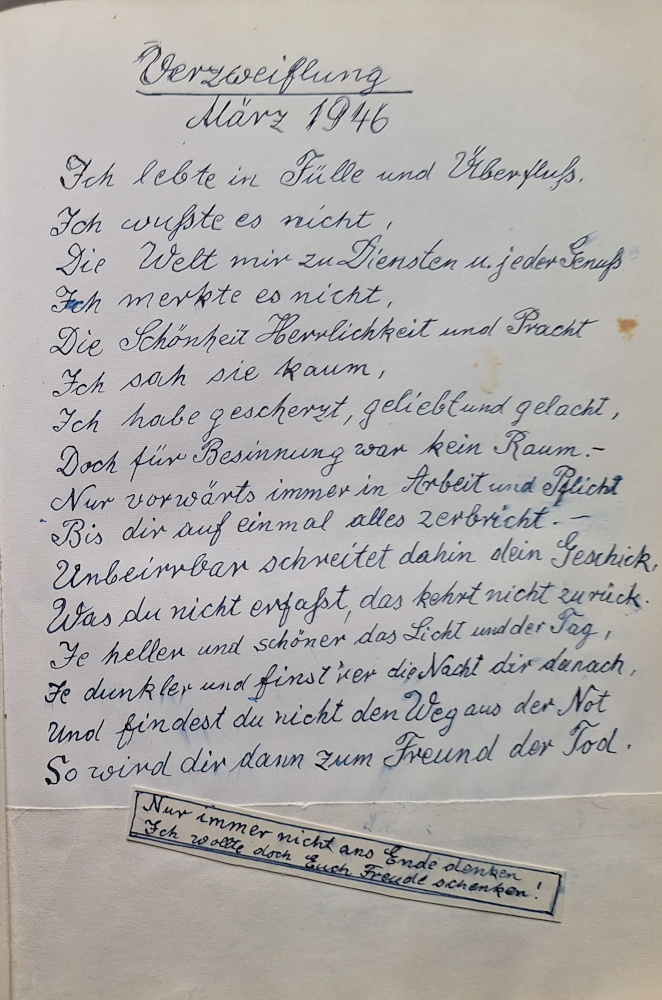 Verzweiflung
März 1946
Ich lebte in Fülle und Überfluß.
Ich wußte es nicht,
Die Welt mir zu Diensten u. jeder Genuß
Ich merkte es nicht,
Die Schönheit Herrlichkeit und Pracht
Ich sah sie kaum,
Ich habe gescherzt, geliebt und gelacht,
Doch für Besinnung war kein Raum.-
Nur vorwärts immer in Arbeit und Pflicht
Bis dir auf einmal alles zerbricht.-
Unbeirrbar schreitet dahin dein Geschick,
Was du nicht erfaßt, das kehrt nicht zurück.
Je heller und schöner das Licht und der Tag,
Je dunkler und finst'rer die Nacht dir danach,
Und findest du nicht den Weg aus der Not
So wird dir dann zum Freund der Tod.
Nur immer nicht ans Ende denken
Ich wollte doch Euch Freude schenken!